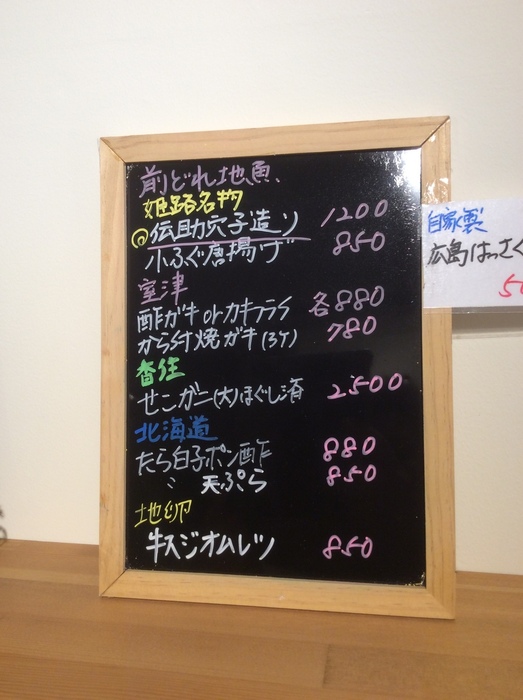 前どれ地魚
姫路名物
◎伝助穴子造り 1200
小ふぐ唐揚げ 850
室津
酢ガキorカキフライ 各880
から付焼ガキ(3ケ) 780
香住
せこガニ(大)ほぐし済 2500
北海道
たら白子ポン酢 880
〃 天ぷら 850
地卵
牛スジオムレツ 850
自家製
広島はっさく